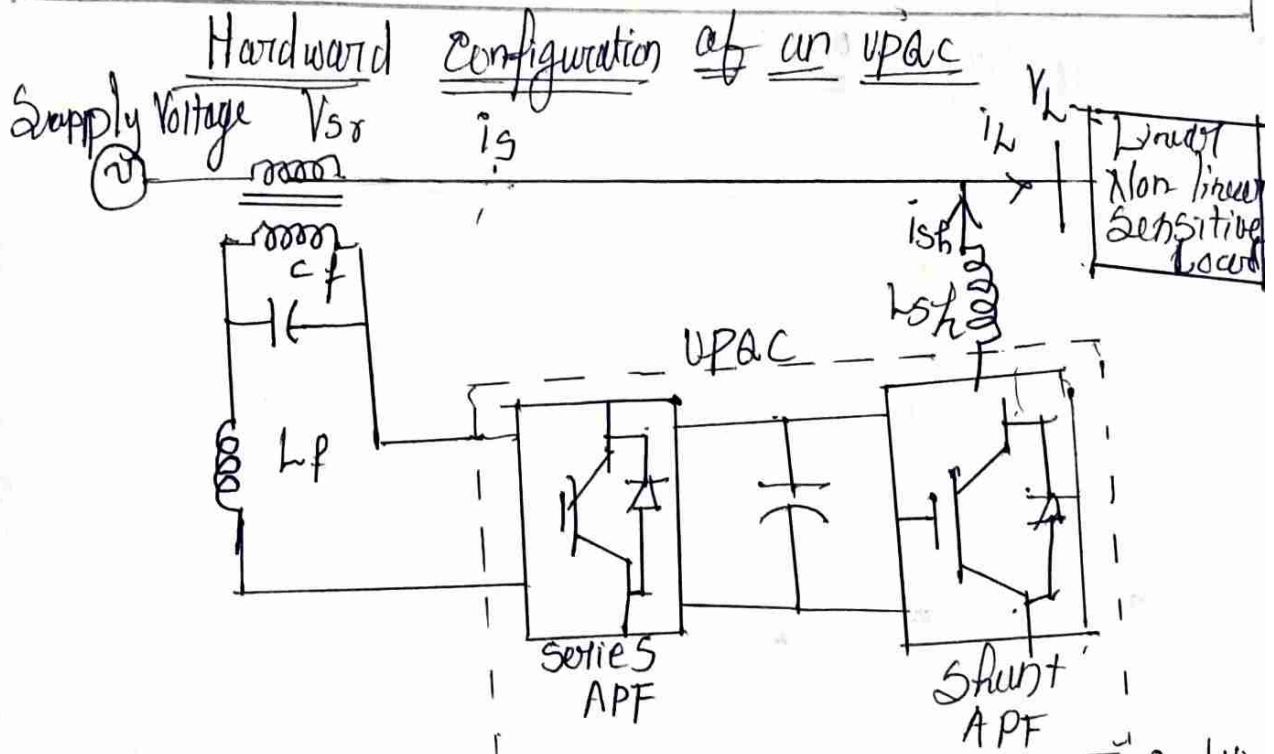 Hardward Configuration of an UPQC
Supply Voltage Vsr
is
iL
VL
Linear
Non linear
Sensitive
Load
ish
Lsh
Cf
UPQC
Lf
Series
APF
Shunt
APF